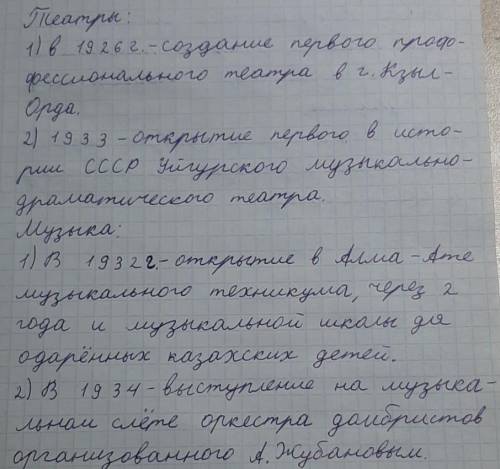 Театры:
1) в 1926 г.-создание первого профо-
фессионального театра в г. Кзыл-
Орда.
2) 1933-открытие первого в исто-
рии СССР Уйгурского музыкально-
драматического театра.
Музыка:
1) В 1932г.-открытие в Алма-Ате
музыкального техникума, через 2
года и музыкальной школы для
одарённых казахских детей.
2) В 1934-выступление на музыка-
льном слёте оркестра домбристов
организованного А. Жубановым.